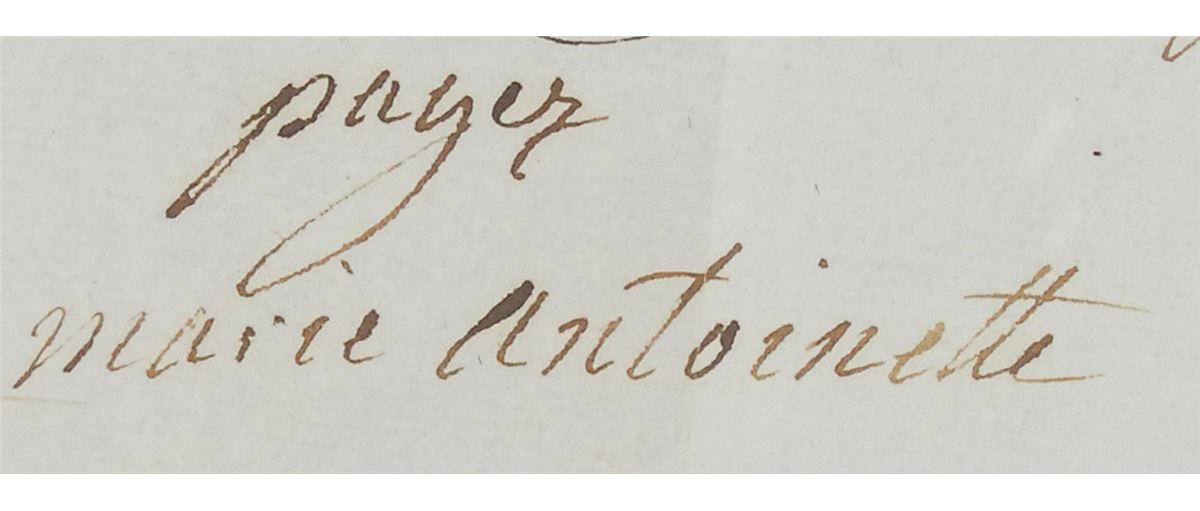 payez
marie antoinette